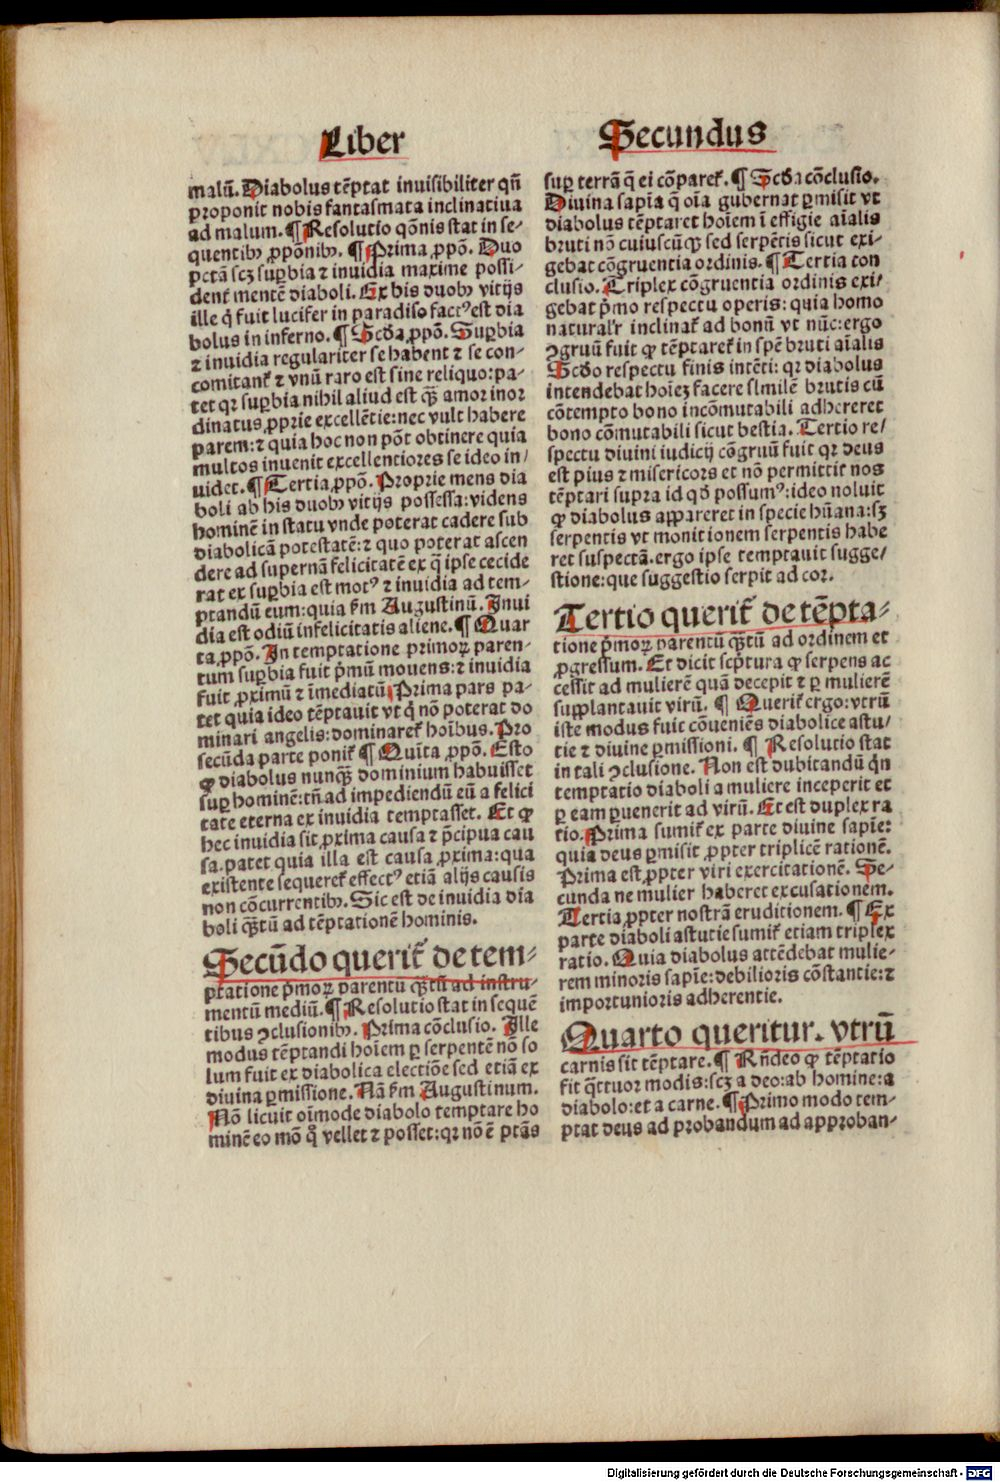 Liber Secundus
malū. Diabolus tēptat inuisibiliter qn̄
proponit nobis fantasmata inclinatiua
ad malum. ¶ Resolutio qōnis stat in se-
quentibꝫ ꝓpōnibꝫ. ¶ Prima ꝓpō. Duo
pctā scꝫ suꝑbia ⁊ inuidia maxime possi-
dent᷑ mentē diaboli. Ex his duobꝫ vitijs
ille q̇ fuit lucifer in paradiso factꝰ est dia
bolus in inferno. ¶ Scḋa ꝓpō. Suꝑbia
⁊ inuidia regulariter se habent ⁊ se con-
comitant᷑ ⁊ vnū raro est sine reliquo: pa-
tet qꝛ suꝑbia nihil aliud est qꝫ̄ amor inor
dinatus ꝓprie excellētie: nec vult habere
parem: ⁊ quia hoc non pōt obtinere quia
multos inuenit excellentiores se ideo in/
uidet. ¶ Tertia ꝓpō. Proprie mens dia
boli ab his duobꝫ vitijs possessa: videns
hominē in statu vnde poterat cadere sub
diabolicā potestatē: ⁊ quo poterat ascen
dere ad supernā felicitatē ex q̄ ipse cecide
rat ex suꝑbia est motꝰ ⁊ inuidia ad tem-
ptandū eum: quia ẜm Augustinū. Inui
dia est odiū infelicitatis aliene. ¶ Quar
ta ꝓpō. In temptatione primoꝝ paren-
tum suꝑbia fuit p̄mū mouens: ⁊ inuidia
fuit ꝓximū ⁊ īmediatū Prima pars pa-
tet quia ideo tēptauit vt q̇ nō poterat do
minari angelis: dominaret᷑ hoībus. Pro
secūda parte ponit᷑ ¶ Quīta ꝓpō. Esto
ꝙ diabolus nunqꝫ̄ dominium habuisset
suꝑ hominē: tn̄ ad impediendū eū a felici
tate eterna ex inuidia temptasset. Et ꝙ
hec inuidia sit ꝓxima causa ⁊ p̄cipua cau
sa. patet quia illa est causa ꝓxima: qua
existente sequeret᷑ effectꝰ etiā alijs causis
non cōcurrentibꝫ. Sic est de inuidia dīa
boli qꝫ̄tū ad tēptationē hominis.
Secūdo querit᷑ de tem-
ptatione p̄moꝝ parentū qꝫ̄tū ad instru-
mentū mediū. ¶ Resolutio stat in sequē
tibus ꝯclusionibꝫ. Prima cōclusio. Ille
modus tēptandi hoīem ꝑ serpentē nō so
lum fuit ex diabolica electiōe sed etiā ex
diuina ꝑmissione. Nā ẜm Augustinum.
Nō licuit oīmode diabolo temptare ho
minē eo mō q̊ vellet ⁊ posset: qꝛ nō ē ptās
suꝑ terrā q̄ ei cōparet᷑. ¶ Scḋa cōclusio.
Diuina sapīa q̄ oīa gubernat ꝑmisit vt
diabolus tēptaret hoīem ī effigie aīalis
bruti nō cuiuscūqꝫ sed serpētis sicut exi-
gebat cōgruentia ordinis. ¶ Tertia con
clusio. Triplex cōgruentia ordinis exi/
gebat p̄mo respectu operis: quia homo
naturalr̄ inclinat᷑ ad bonū vt nūc: ergo
ꝯgruū fuit ꝙ tēptaret᷑ in spē bruti aīalis
Scḋo respectu finis intēti: qꝛ diabolus
intendebat hoīeꝫ facere similē brutis cū
cōtempto bono incōmutabili adhereret
bono cōmutabili sicut bestia. Tertio re/
spectu diuini iudicij cōgruū fuit qꝛ deus
est pius ⁊ misericors et nō permittit nos
tēptari supra id qḋ possumꝰ: ideo noluit
ꝙ diabolus appareret in specie hūana: sꝫ
serpentis vt monitionem serpentis habe
ret suspectā. ergo ipse temptauit sugge/
stione: que suggestio serpit ad cor.
Tertio querit᷑ de tēpta-
tione p̄moꝝ parentū qꝫ̄tū ad ordinem et
ꝓgressum. Et dicit scp̄tura ꝙ serpens ac
cessit ad mulierē quā decepit ⁊ ꝑ mulierē
supplantauit virū. ¶ Querit᷑ ergo: vtrū
iste modus fuit cōueniēs diabolice astu/
tie ⁊ diuine ꝑmissioni. ¶ Resolutio stat
in tali ꝯclusione. Non est dubitandū qn̄
temptatio diaboli a muliere inceperit et
ꝑ eam ꝑuenerit ad virū. Et est duplex ra
tio. Prima sumit᷑ ex parte diuine sapīe:
quia deus ꝑmisit ꝓpter triplicē rationē.
Prima est ꝓpter viri exercitationē. Se-
cunda ne mulier haberet excusationem.
Tertia ꝓpter nostrā eruditionem. ¶ Ex
parte diaboli astutie sumit᷑ etiam triplex
ratio. Quia diabolus attēdebat mulie-
rem minoris sapīe: debilioris cōstantie: ⁊
importunioris adherentie.
Quarto queritur. vtrū
carnis sit tēptare. ¶ Rn̄deo ꝙ tēptatio
fit q̄ttuor modis: scꝫ a deo: ab homine: a
diabolo: et a carne. ¶ Primo modo tem-
ptat deus ad probandum ad approban-
Digitalisierung gefördert durch die Deutsche Forschungsgemeinschaft - DFG